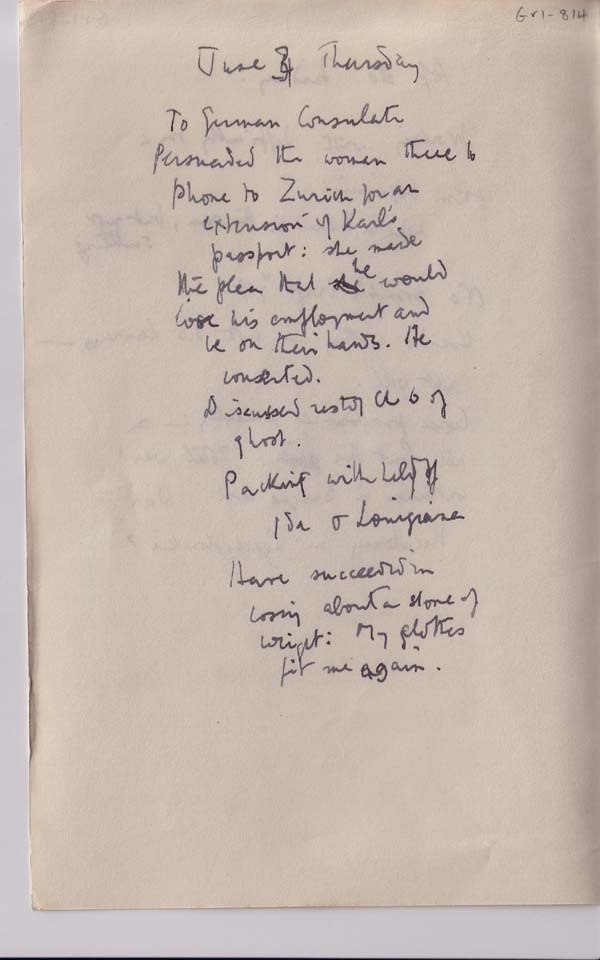 Gr1-814
June 4 Thursday
To German Consulate
Persuaded the woman there to
phone to Zurich for an
extension of Karl's
passport: she made
the plea that he would
lose his employment and
be on their hands. He
consented.
Discussed rest of Ch 6 of
ghost.
Packing with help of
Ida &
Have succeeded in
losing about a stone of
weight: My clothes
fit me again.